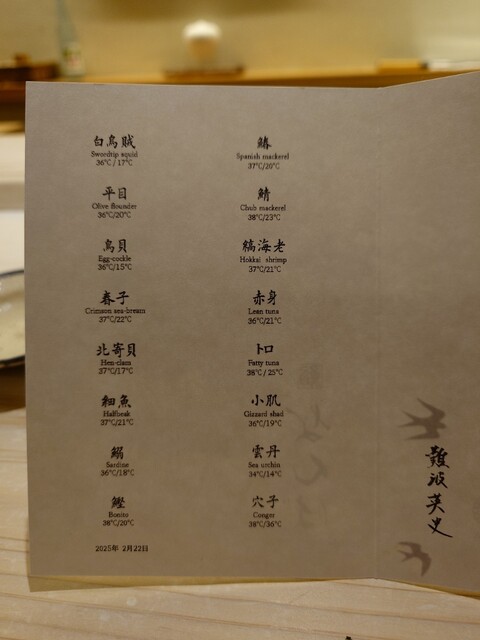 白烏賊
Swordtip squid
36℃ / 17℃
平目
Olive flounder
36℃/20℃
鳥貝
Egg-cockle
36℃/15℃
春子
Crimson sea-bream
37℃/22℃
北寄貝
Hen-clam
37℃/17℃
細魚
Halfbeak
37℃/21℃
鰯
Sardine
36℃/18℃
鰹
Bonito
38℃/20℃
2025年 2月22日
鰆
Spanish mackerel
37℃/20℃
鯖
Chub mackerel
38℃/23℃
縞海老
Hokkai shrimp
37℃/21℃
赤身
Lean tuna
36℃/21℃
トロ
Fatty tuna
38℃ / 25℃
小肌
Gizzard shad
36℃/19℃
雲丹
Sea urchin
34℃/14℃
穴子
Conger
38℃/36℃
難波英史